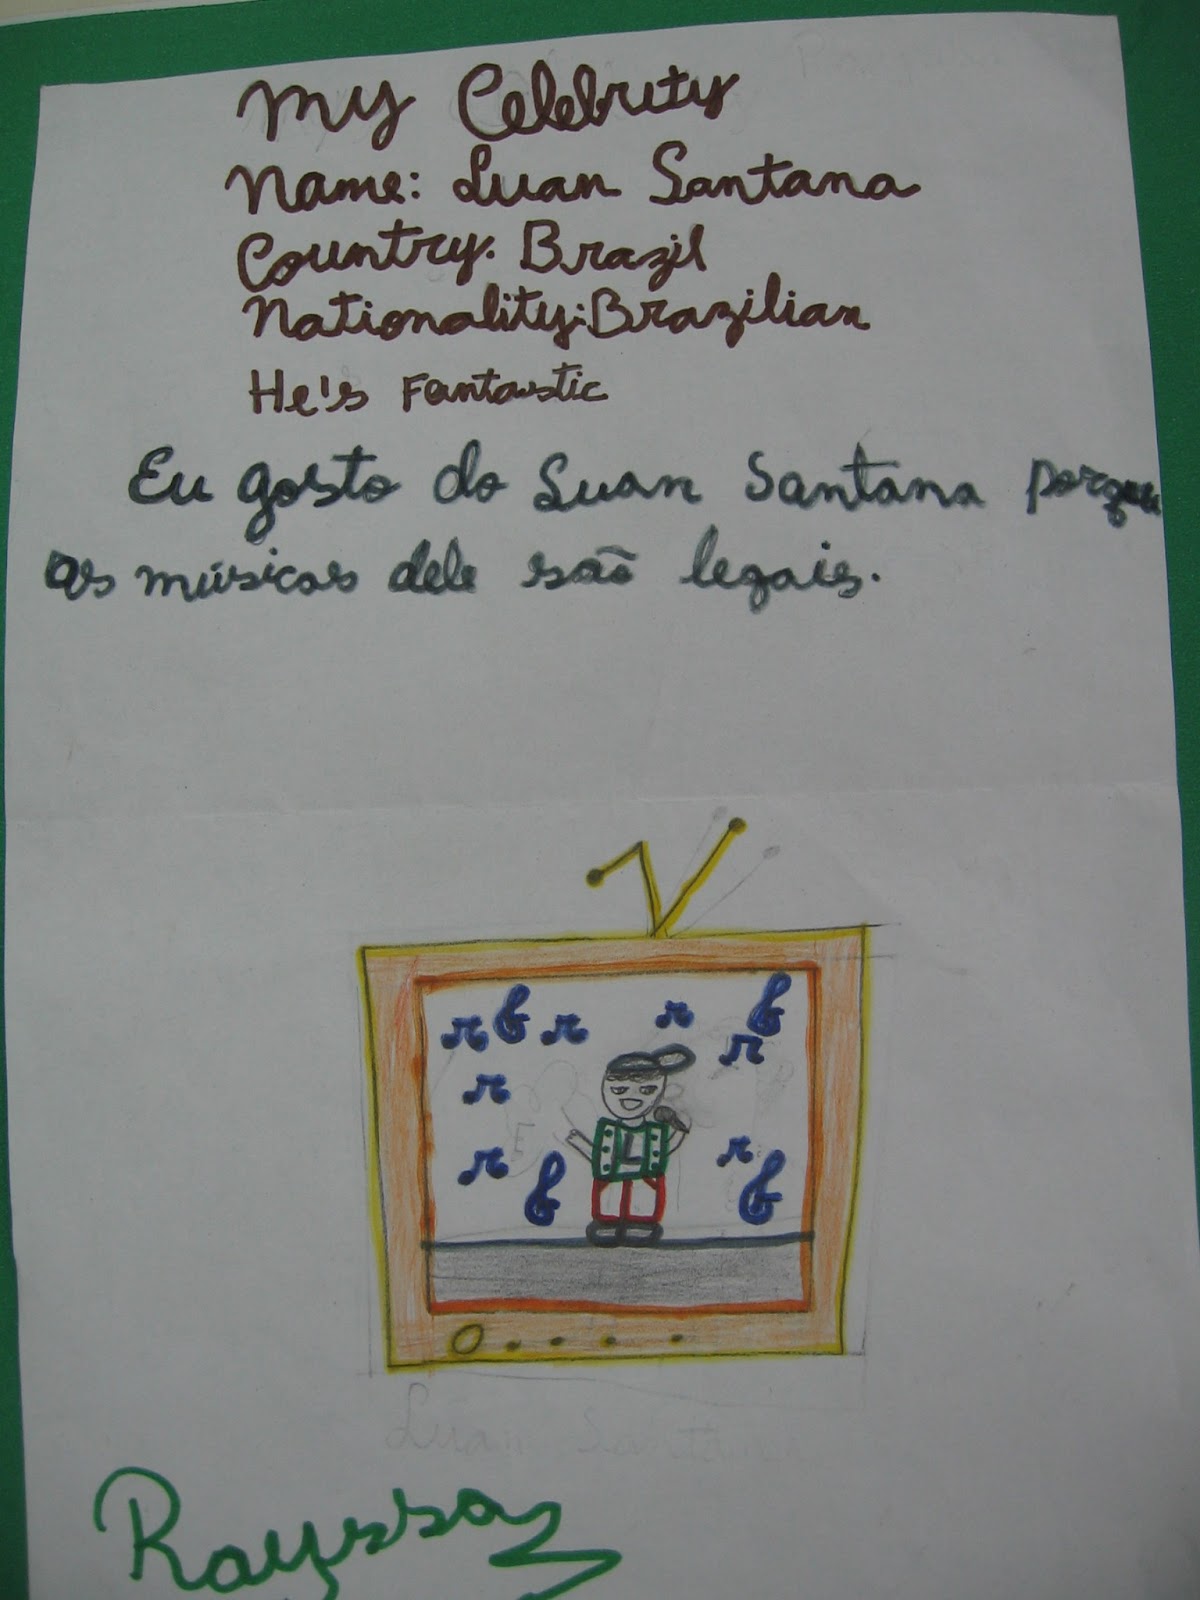 My Celebrity
Name: Luan Santana
Country: Brazil
Nationality: Brazilian
He's Fantastic
Eu gosto do Luan Santana porque
as músicas dele são legais.
L
Luan Santana
Rayssa